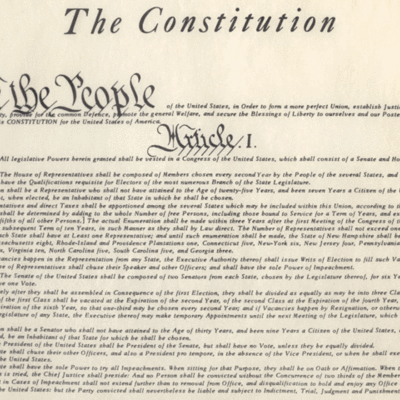 The Constitution
the People of the United States, in Order to form a more perfect Union, establish Justi
for the common Defence, promote the general Welfare, and secure the Blessings of Liberty to ourselves and our Poste
CONSTITUTION for the United States of America.
Article I.
All legislative Powers herein granted shall be vested in a Congress of the United States, which shall consist of a Senate and Ho
The House of Representatives shall be composed of Members chosen every second Year by the People of the several States, and
have the Qualifications requisite for Electors of the most numerous Branch of the State Legislature.
shall be a Representative who shall not have attained to the Age of twenty-five Years, and been seven Years a Citizen of the U
when elected, be an Inhabitant of that State in which he shall be chosen.
and direct Taxes shall be apportioned among the several States which may be included within this Union, according to th
shall be determined by adding to the whole Number of free Persons, including those bound to Service for a Term of Years, and ex
fifths of all other Persons.] The actual Enumeration shall be made within three Years after the first Meeting of the Congress of
subsequent Term of ten Years, in such Manner as they shall by Law direct. The Number of Representatives shall not exceed one
shall have at Least one Representative; and until such enumeration shall be made, the State of New Hampshire shall be
eight, Rhode-Island and Providence Plantations one, Connecticut five, New-York six, New Jersey four, Pennsylvania
Virginia ten, North Carolina five, South Carolina five, and Georgia three.
happen in the Representation from any State, the Executive Authority thereof shall issue Writs of Election to fill such Va
of Representatives shall chuse their Speaker and other Officers; and shall have the sole Power of Impeachment.
The Senate of the United States shall be composed of two Senators from each State, chosen by the Legislature thereof, for six Y
one Vote.
after they shall be assembled in Consequence of the first Election, they shall be divided as equally as may be into three Cla
of the first Class shall be vacated at the Expiration of the second Year, of the second Class at the Expiration of the fourth Year,
of the sixth Year, so that one-third may be chosen every second Year; and if Vacancies happen by Resignation, or otherw
of any State, the Executive thereof may make temporary Appointments until the next Meeting of the Legislature, which
shall be a Senator who shall not have attained to the Age of thirty Years, and been nine Years a Citizen of the United States,
be an Inhabitant of that State for which he shall be chosen.
President of the United States shall be President of the Senate, but shall have no Vote, unless they be equally divided.
shall chuse their other Officers, and also a President pro tempore, in the absence of the Vice President, or when he shall exer
the United States.
shall have the sole Power to try all Impeachments. When sitting for that Purpose, they shall be on Oath or Affirmation. When t
is tried, the Chief Justice shall preside: And no Person shall be convicted without the Concurrence of two thirds of the Member
in Cases of Impeachment shall not extend further than to removal from Office, and disqualification to hold and enjoy any Office
the United States: but the Party convicted shall nevertheless be liable and subject to Indictment, Trial, Judgment and Punishment